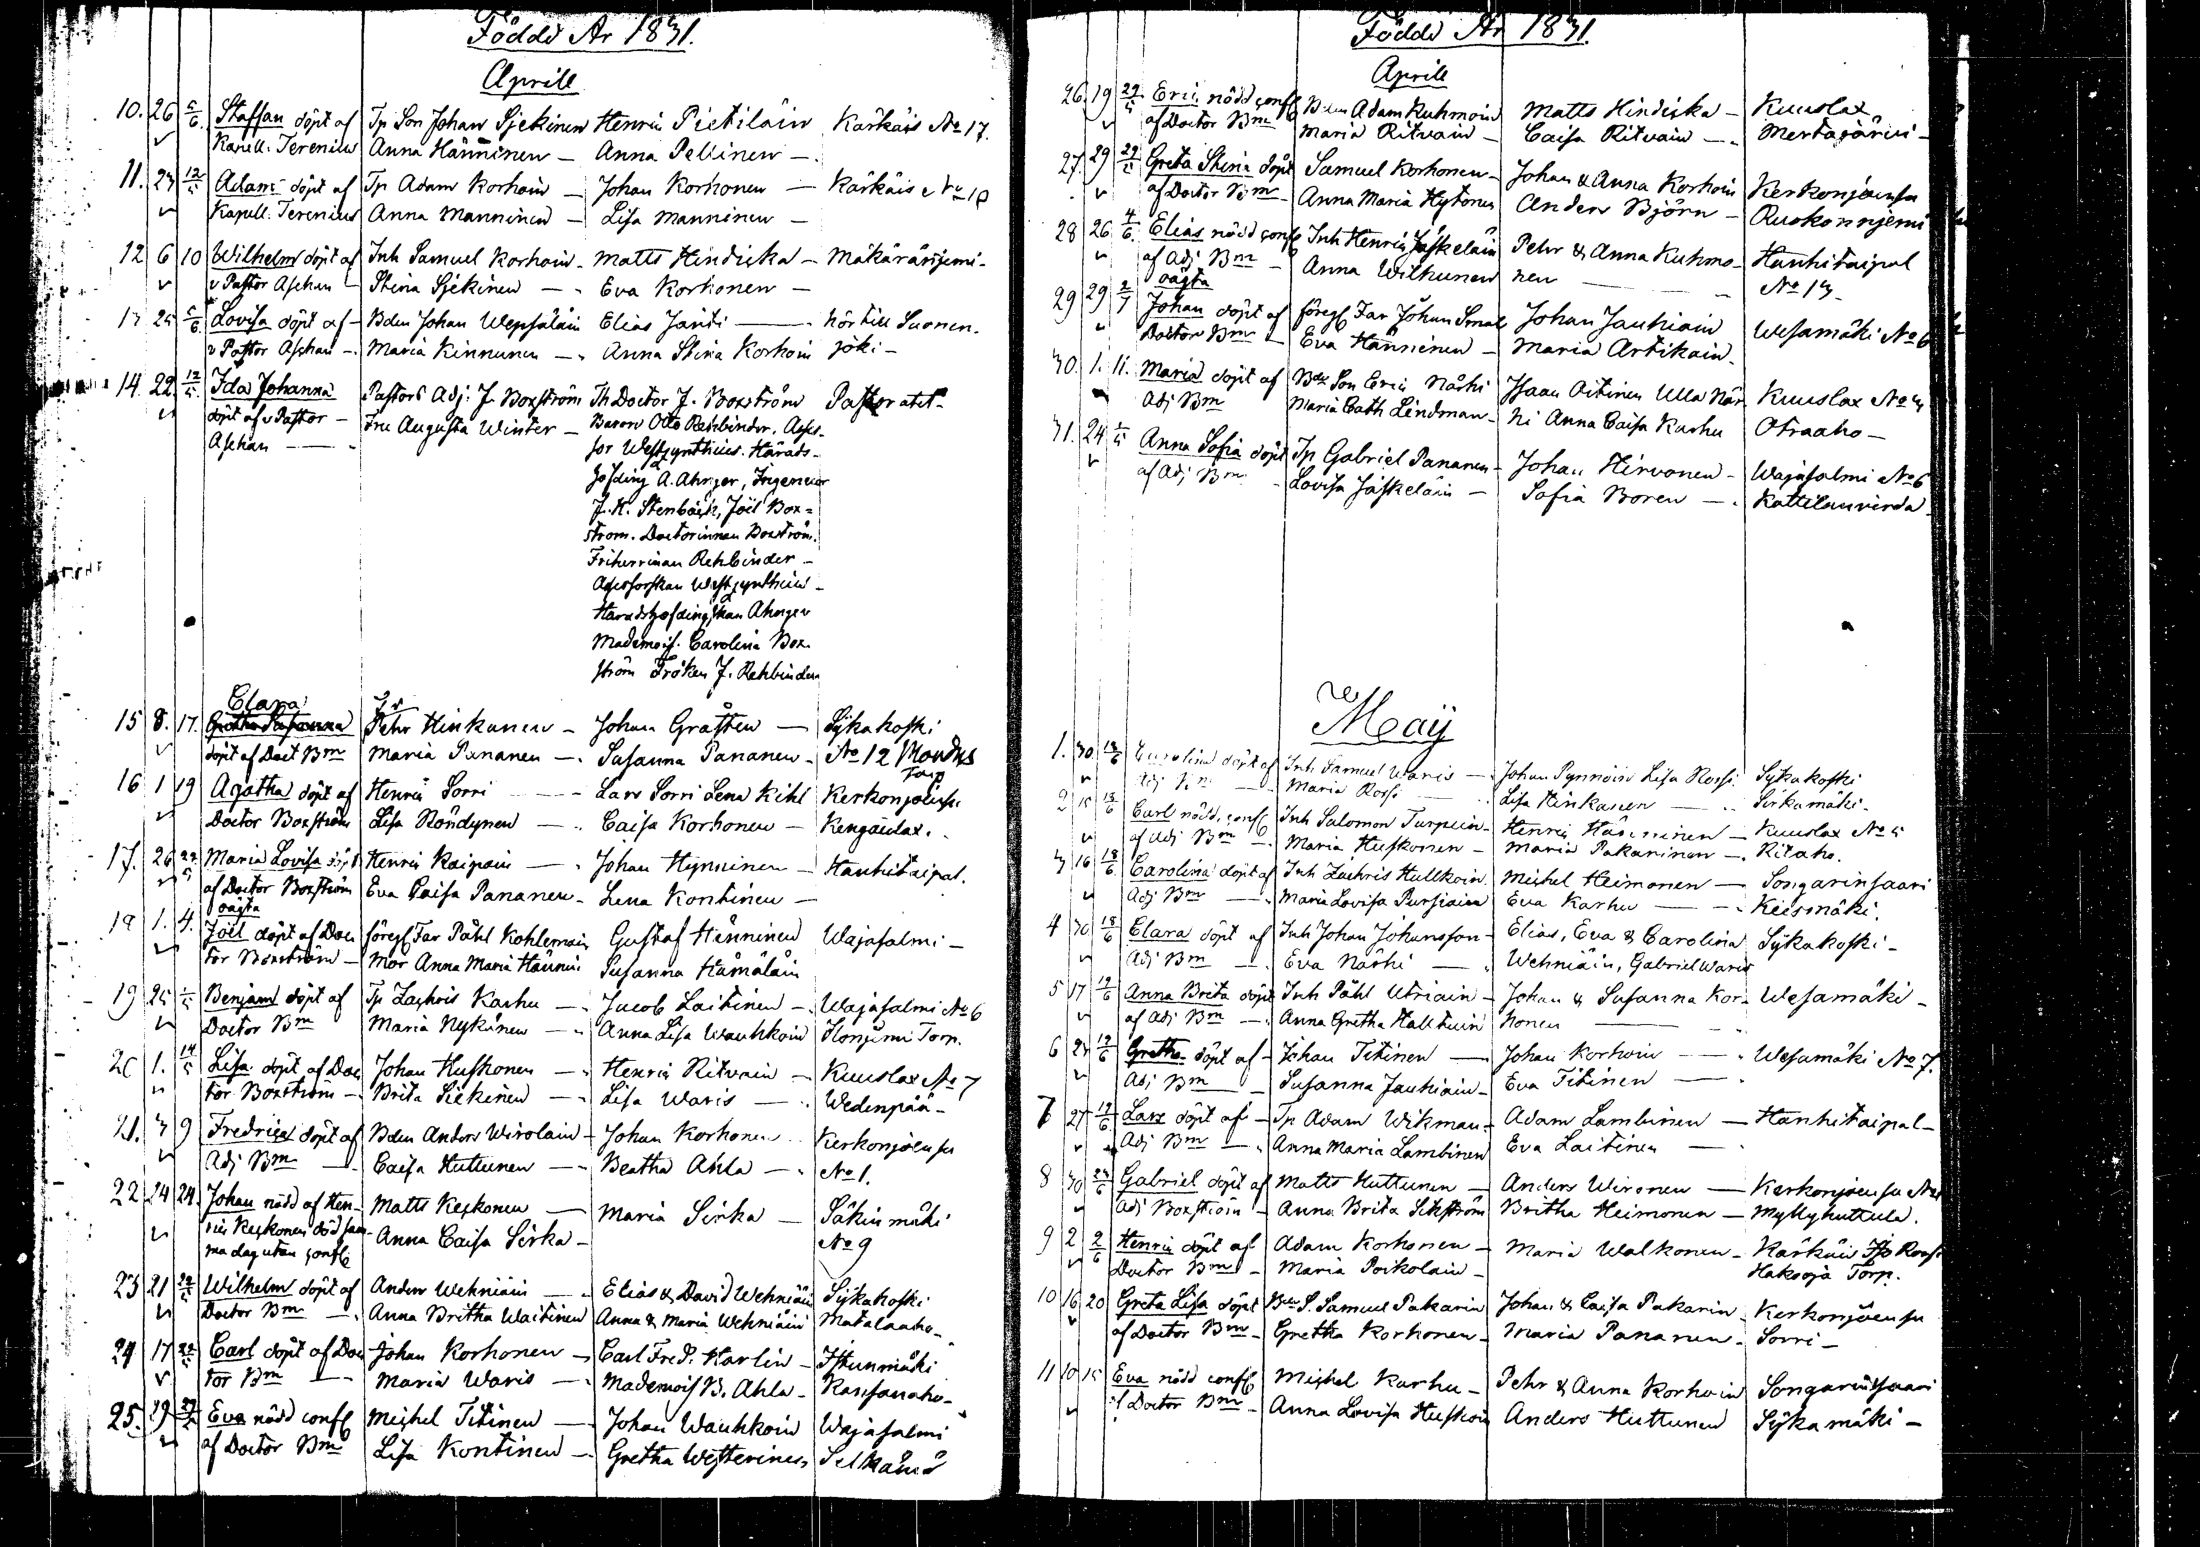 Född År 1831.
Aprill
10. 26 5/6 Staffan döpt af Tp Son Johan Sjekinen Henric Pietiläin Kärkäis No 17.
Kapell. Terenius Anna Hänninen — Anna Pellinen —
11. 23 12/5 Adam döpt af Tp Adam Korhoin — Johan Korhonen — Kärkäis No 18
Kapell. Terenius Anna Manninen — Lisa Manninen —
12 6 10 Wilhelm döpt af Inh Samuel Korhoin — Matts Hindicka — Makärärijemi —
v Pastor Aschan — Stina Sjekinen — Eva Korhonen —
13 25 5/6 Lovisa döpt af — Bden Johan Wepsäläin Elias Jänti — hör till Suonen-
v Pastor Aschan — Maria Kinnunen — Anna Stina Korhoin joki —
14 22 12/5 Ida Johanna Pastors Adj: J. Boxström Th Doctor J. Boxström Pastoratet —
döpt af v Pastor — Fru Augusta Winter — Baron Otto Rehbinder. Asses-
Aschan — sor Westzynthius. Härads-
höfding A. Ahnger, Ingenieur
J. H. Stenbäck, Joël Box=
ström. Doctorinnan Boxström.
Friherrinan Rehbinder —
Assessorskan Westzynthius —
Häradshöfdingskan Ahnger
Mademois. Carolina Box-
ström Fröken J. Rehbinder
Clara
15 8. 17. Petr Hinkanen — Johan Gråsten — Sykäkoski
döpt af Doct Bm Maria Pananen — Susanna Pananen — No 12
16 1 19 Agatha döpt af Henric Sorri — Lars Sorri Lena Kihl Kerkonjoensu
Doctor Boxström Lisa Röndynen — Caisa Korhonen — Kengäulax.
17. 26 22/5 Maria Lovisa döpt Henric Kaipain — Johan Hynninen — Hanhitaipal.
af Doctor Boxström Eva Caisa Pananen — Lena Kontinen —
oägta
18 1. 4. Joël döpt af Doc föregf Far Påhl Kohlemain Gustaf Hänninen Wajasalmi —
tor Boxström — Mor Anna Maria Hännin Susanna Hämäläin
19 25 Benjam döpt af Tp Zachris Karhu — Jacob Laitinen — Wajasalmi No 6
Doctor Bm Maria Nykänen — Anna Lisa Wauhkoin Honjemi Torp.
20 1. 14/5 Lisa döpt af Doc Johan Huskonen — Henric Ritvain — Kuuslax No 7
tor Boxström — Brita Siekinen — Lisa Waris — Wedenpää —
21. 3 9 Fredrica döpt af Bden Anders Wirolain — Johan Korhonen Kerkonjoensu
Adj Bm — Caisa Huttunen — Beatha Ahla — No 1.
22 24 24. Johan nödd af Hen- Matts Keskonen — Maria Sirka — Säkinmäki
ric Keskonen död sam- Anna Caisa Sirka — No 9
ma dag utan confl
23 21 22/5 Wilhelm döpt af Anders Wehniäin — Elias & David Wehniäin Sykäkoski
Doctor Bm — Anna Britha Waitinen Anna & Maria Wehniäin Matalaaho —
24 17 22/5 Carl döpt af Doc Johan Korhonen — Carl Fred. Harlin — Istunmäki
tor Bm — Maria Waris — Mademois B. Ahla — Kansanaho —
25. 19 29/5 Eva nödd confl Michel Titinen — Johan Wauhkoin Wajasalmi
af Doctor Bm Lisa Kontinen — Gretha Westerinen
Född År 1831.
Aprill
26 19 29/5 Eric nödd confl Bden Adam Kuhmoin Matts Hindicka — Kuuslax
af Doctor Bm Maria Ritvain — Caisa Ritvain — Mertajärvi —
27. 29 29/5 Greta Stina döpt Samuel Korhonen — Johan & Anna Korhoin Kerkonjoensu
af Doctor Bm — Anna Maria Hytönen Anders Björn — Ruokonnjemi
28 26 4/6 Elias nödd confl Inh Henric Jäskeläin Pehr & Anna Kuhmo- Hanhitaipal
af Adj Bm — Anna Wilhunen nen — No 13.
oägta
29 29 2/7 Johan döpt af föregf Far Johan Smal Johan Jauhiain Wesamäki No 6
Doctor Bm — Eva Hänninen — Maria Artikain.
30. 1. 11. Maria döpt af Bde Son Eric Närhi Isaac Oitinen Ulla När Kuuslax No 3
Adj Bm Maria Cath Lindman — hi Anna Caisa Karhu Otraaho —
31. 24 Anna Sofia döpt Tp Gabriel Pananen — Johan Hirvonen — Wajasalmi No 6
af Adj Bm — Lovisa Jäskeläin — Sofia Boren — Kattilanvirda
Maij
1. 30 18/6 Carolina döpt af Inh Samuel Waris — Johan Pynnöin Lisa Rossi Sykäkoski
Adj Bm — Maria Rossi — Lisa Hinkanen — Sirkamäki —
2 15 18/6 Carl nödd, confl Inh Salomon Turpein — Henric Hänninen — Kuuslax No 5
af Adj Bm — Maria Huskonen — Maria Pakarinen — Ritaho.
3 16 18/6 Carolina döpt af Inh Zachris Hullkoin Michel Heimonen — Songarinsaari
Adj Bm — Maria Lovisa Pursiain Eva Karhu — Keismäki.
4 30 18/6 Clara döpt af Inh Johan Johansson — Elias, Eva & Carolina Sykäkoski —
Adj Bm — Eva Närhi — Wehniäin, Gabriel Waris
5 17 12/6 Anna Brita döpt Inh Påhl Utriain — Johan & Susanna Kor- Wesamäki —
af Adj Bm — Anna Gretha Halttuin honen —
6 23 12/6 Gretha döpt af — Johan Titinen — Johan Korhoin — Wesamäki No 7.
Adj Bm — Susanna Jauhiain — Eva Titinen —
7 27 12/6 Lars döpt af — Tp Adam Wikman — Adam Lambinen — Hanhitaipal —
Adj Bm — Anna Maria Lambinen Eva Laitinen —
8 30 23/6 Gabriel döpt af Matts Huttunen — Anders Wironen — Kerkonjoensu
Adj Boxström — Anna Brita Sikström Britha Heimonen — Myllyhuttula.
9 2 2/6 Henric döpt af Adam Korhonen — Maria Walkonen — Kärkäis
Doctor Bm — Maria Poikolain — Haksoja Torp.
10 16 20 Greta Lisa döpt Bde S. Samuel Pakarin Johan & Caisa Pakarin Kerkonjoensu
af Doctor Bm — Gretha Korhonen — Maria Pananen — Sorri —
11 10 15 Eva nödd confl Michel Karhu — Pehr & Anna Korhoin Songarinsaari
af Doctor Bm — Anna Lovisa Huskoin Anders Huttunen Sykämäki —